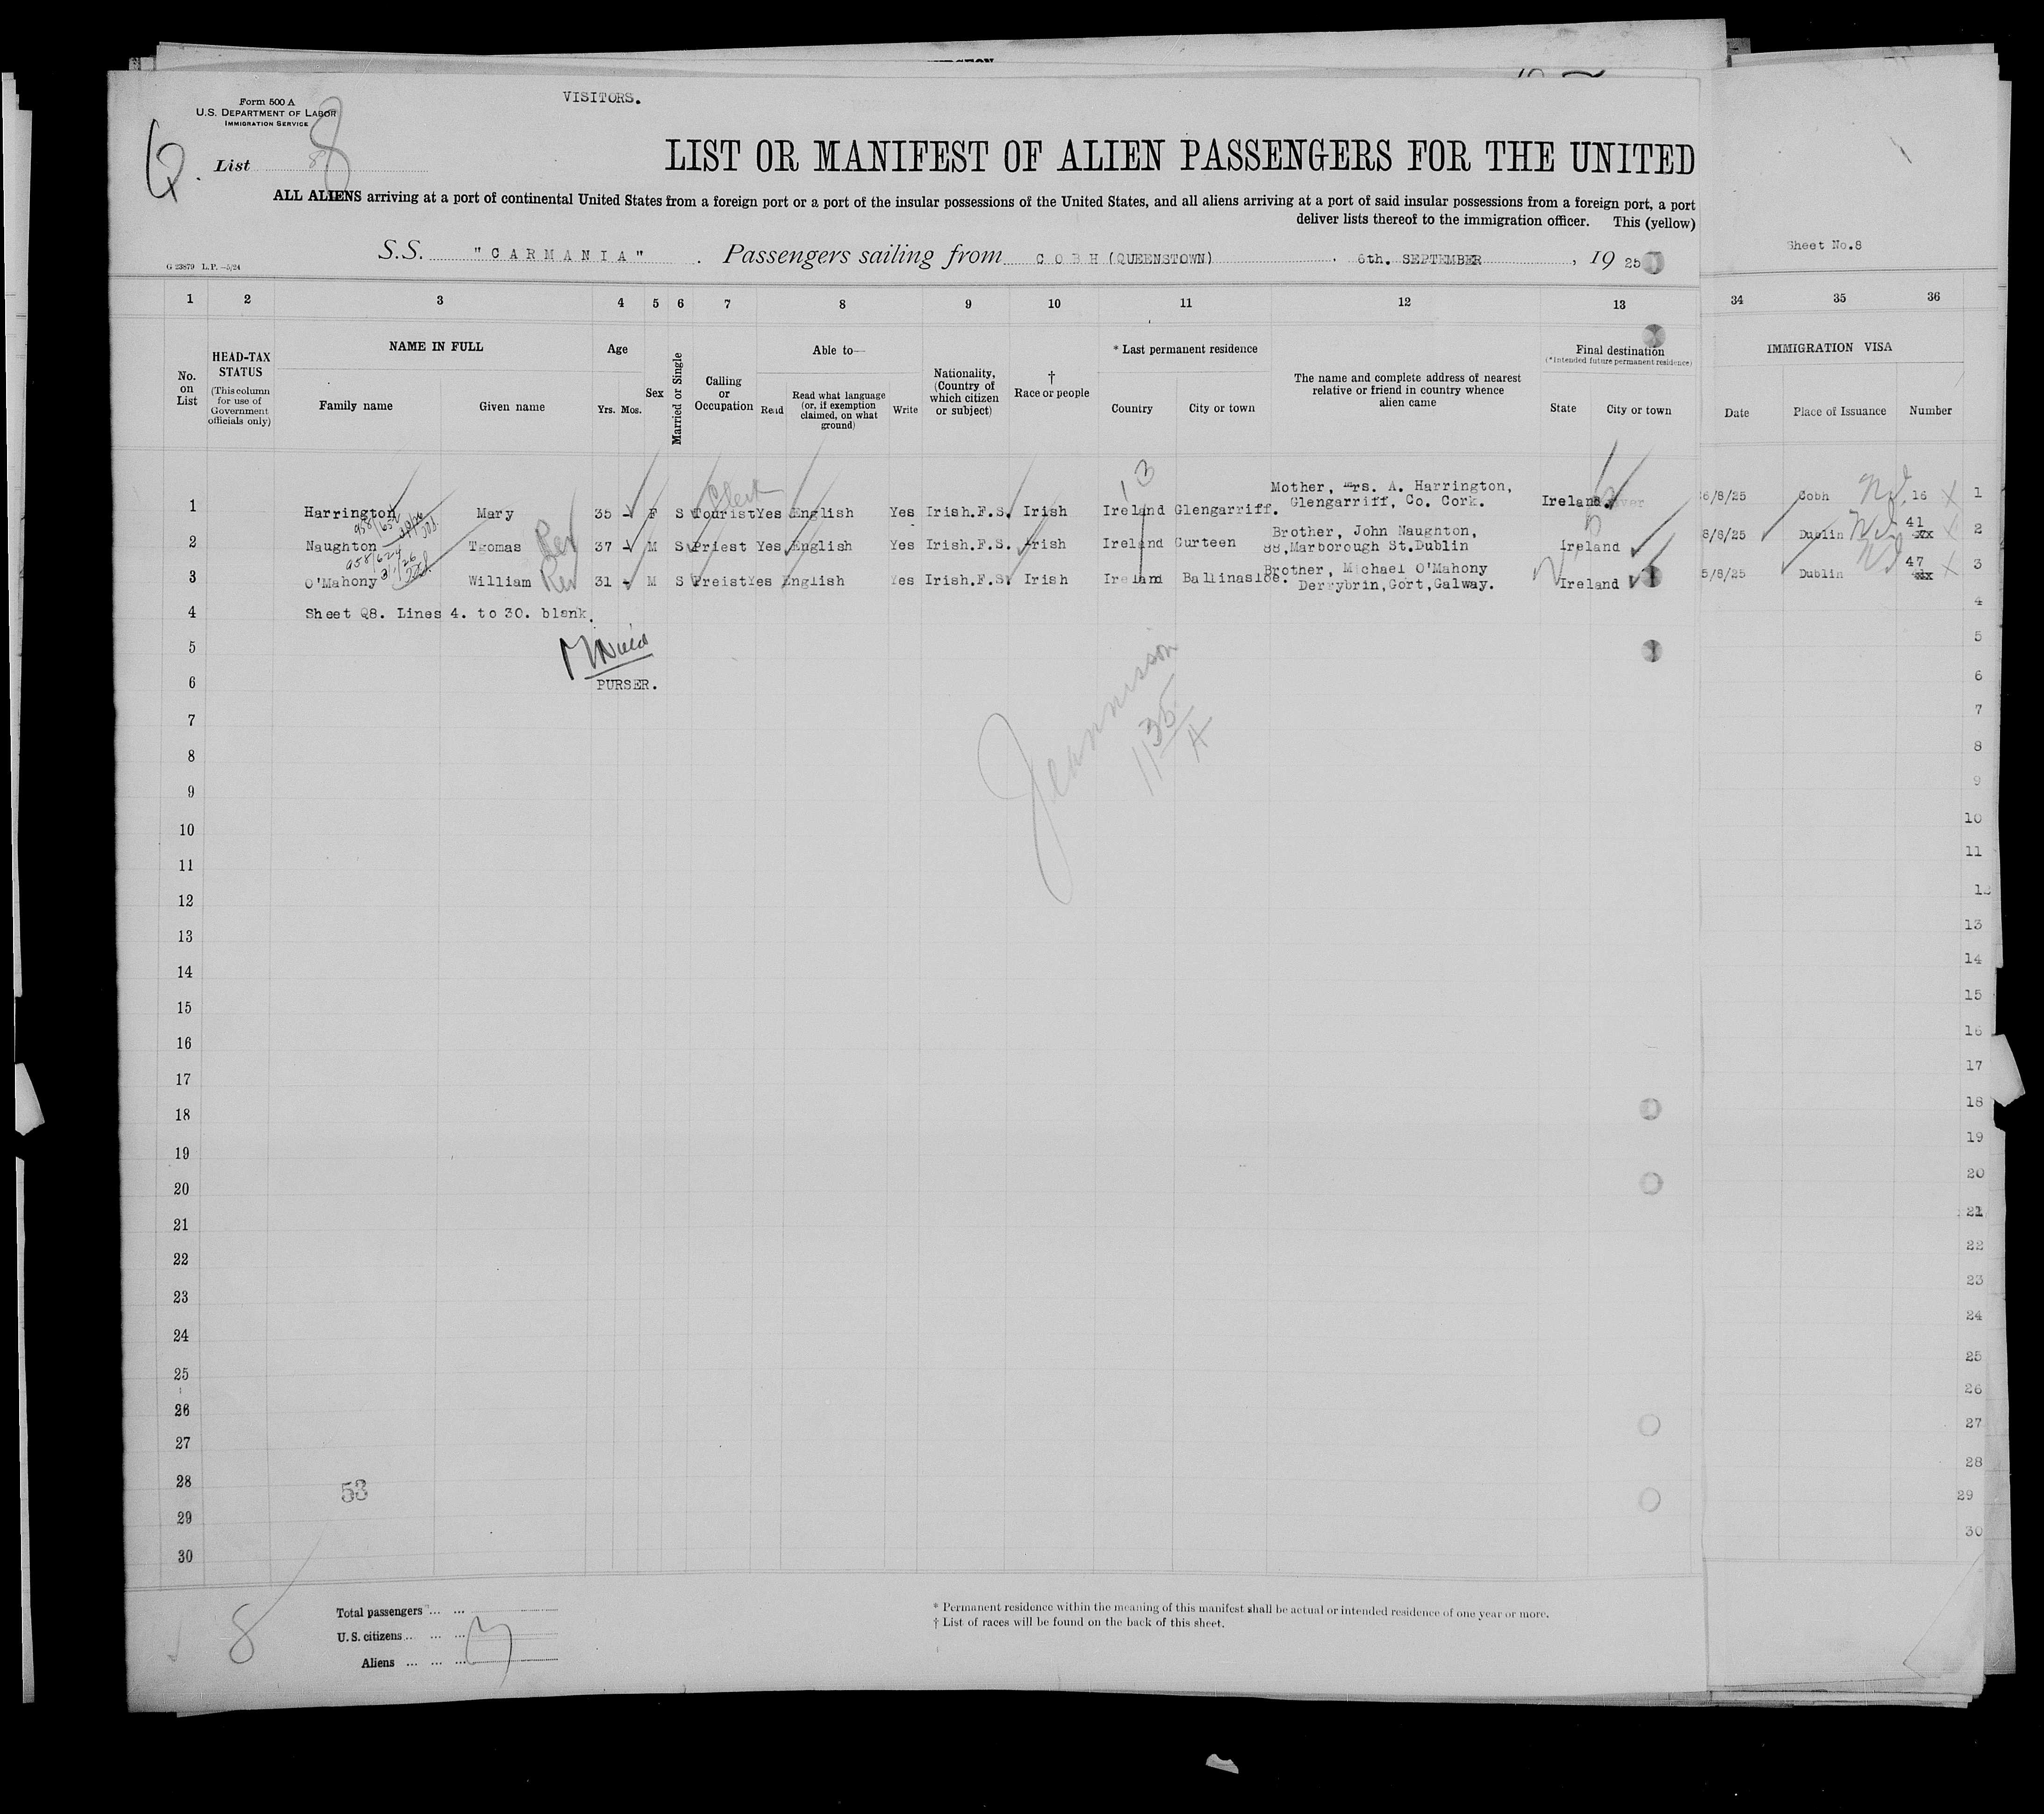 VISITORS.
Form 500 A
U.S. DEPARTMENT OF LABOR
IMMIGRATION SERVICE
Q. List 8 8
LIST OR MANIFEST OF ALIEN PASSENGERS FOR THE UNITED
ALL ALIENS arriving at a port of continental United States from a foreign port or a port of the insular possessions of the United States, and all aliens arriving at a port of said insular possessions from a foreign port, a port
deliver lists thereof to the immigration officer. This (yellow)
Sheet No.8
S.S. "CARMANIA". Passengers sailing from COBH (QUEENSTOWN). 6th. SEPTEMBER, 19 25
G 23879 L.P.—5/24
1 2 3 4 5 6 7 8 9 10 11 12 13 34 35 36
No. on List
HEAD-TAX STATUS
(This column for use of Government officials only)
NAME IN FULL
Family name Given name
Age
Yrs. Mos.
Sex
Married or Single
Calling or Occupation
Able to—
Read Read what language (or, if exemption claimed, on what ground) Write
Nationality, (Country of which citizen or subject)
† Race or people
* Last permanent residence
Country City or town
The name and complete address of nearest relative or friend in country whence alien came
Final destination
(*Intended future permanent residence)
State City or town
IMMIGRATION VISA
Date Place of Issuance Number
13
Clerk
1 Harrington Mary 35 - F S Tourist Yes English Yes Irish.F.S. Irish Ireland Glengarriff. Mother, Mrs. A. Harrington, Glengarriff, Co. Cork. Ireland. 6/8/25 Cobh 16 1
2 Naughton Tgomas Rev 37 - M S Priest Yes English Yes Irish.F.S. Irish Ireland Gurteen Brother, John Naughton, 88,Marborough St.Dublin Ireland 8/8/25 Dublin 41 xx 2
3 O'Mahony William Rev 31 - M S Preist Yes English Yes Irish.F.S. Irish Ireland Ballinasloe. Brother, Michael O'Mahony Derrybrin,Gort,Galway. Ireland 5/8/25 Dublin 47 xx 3
4 Sheet Q8. Lines 4. to 30. blank. 4
5 5
6 PURSER. 6
7 7
8 8
9 9
10 10
11 11
12 12
13 13
14 14
15 15
16 16
17 17
18 18
19 19
20 20
21 21
22 22
23 23
24 24
25 25
26 26
27 27
28 53 28
29 29
30 30
1135/A
8
Total passengers
U.S. citizens
Aliens
3
* Permanent residence within the meaning of this manifest shall be actual or intended residence of one year or more.
† List of races will be found on the back of this sheet.